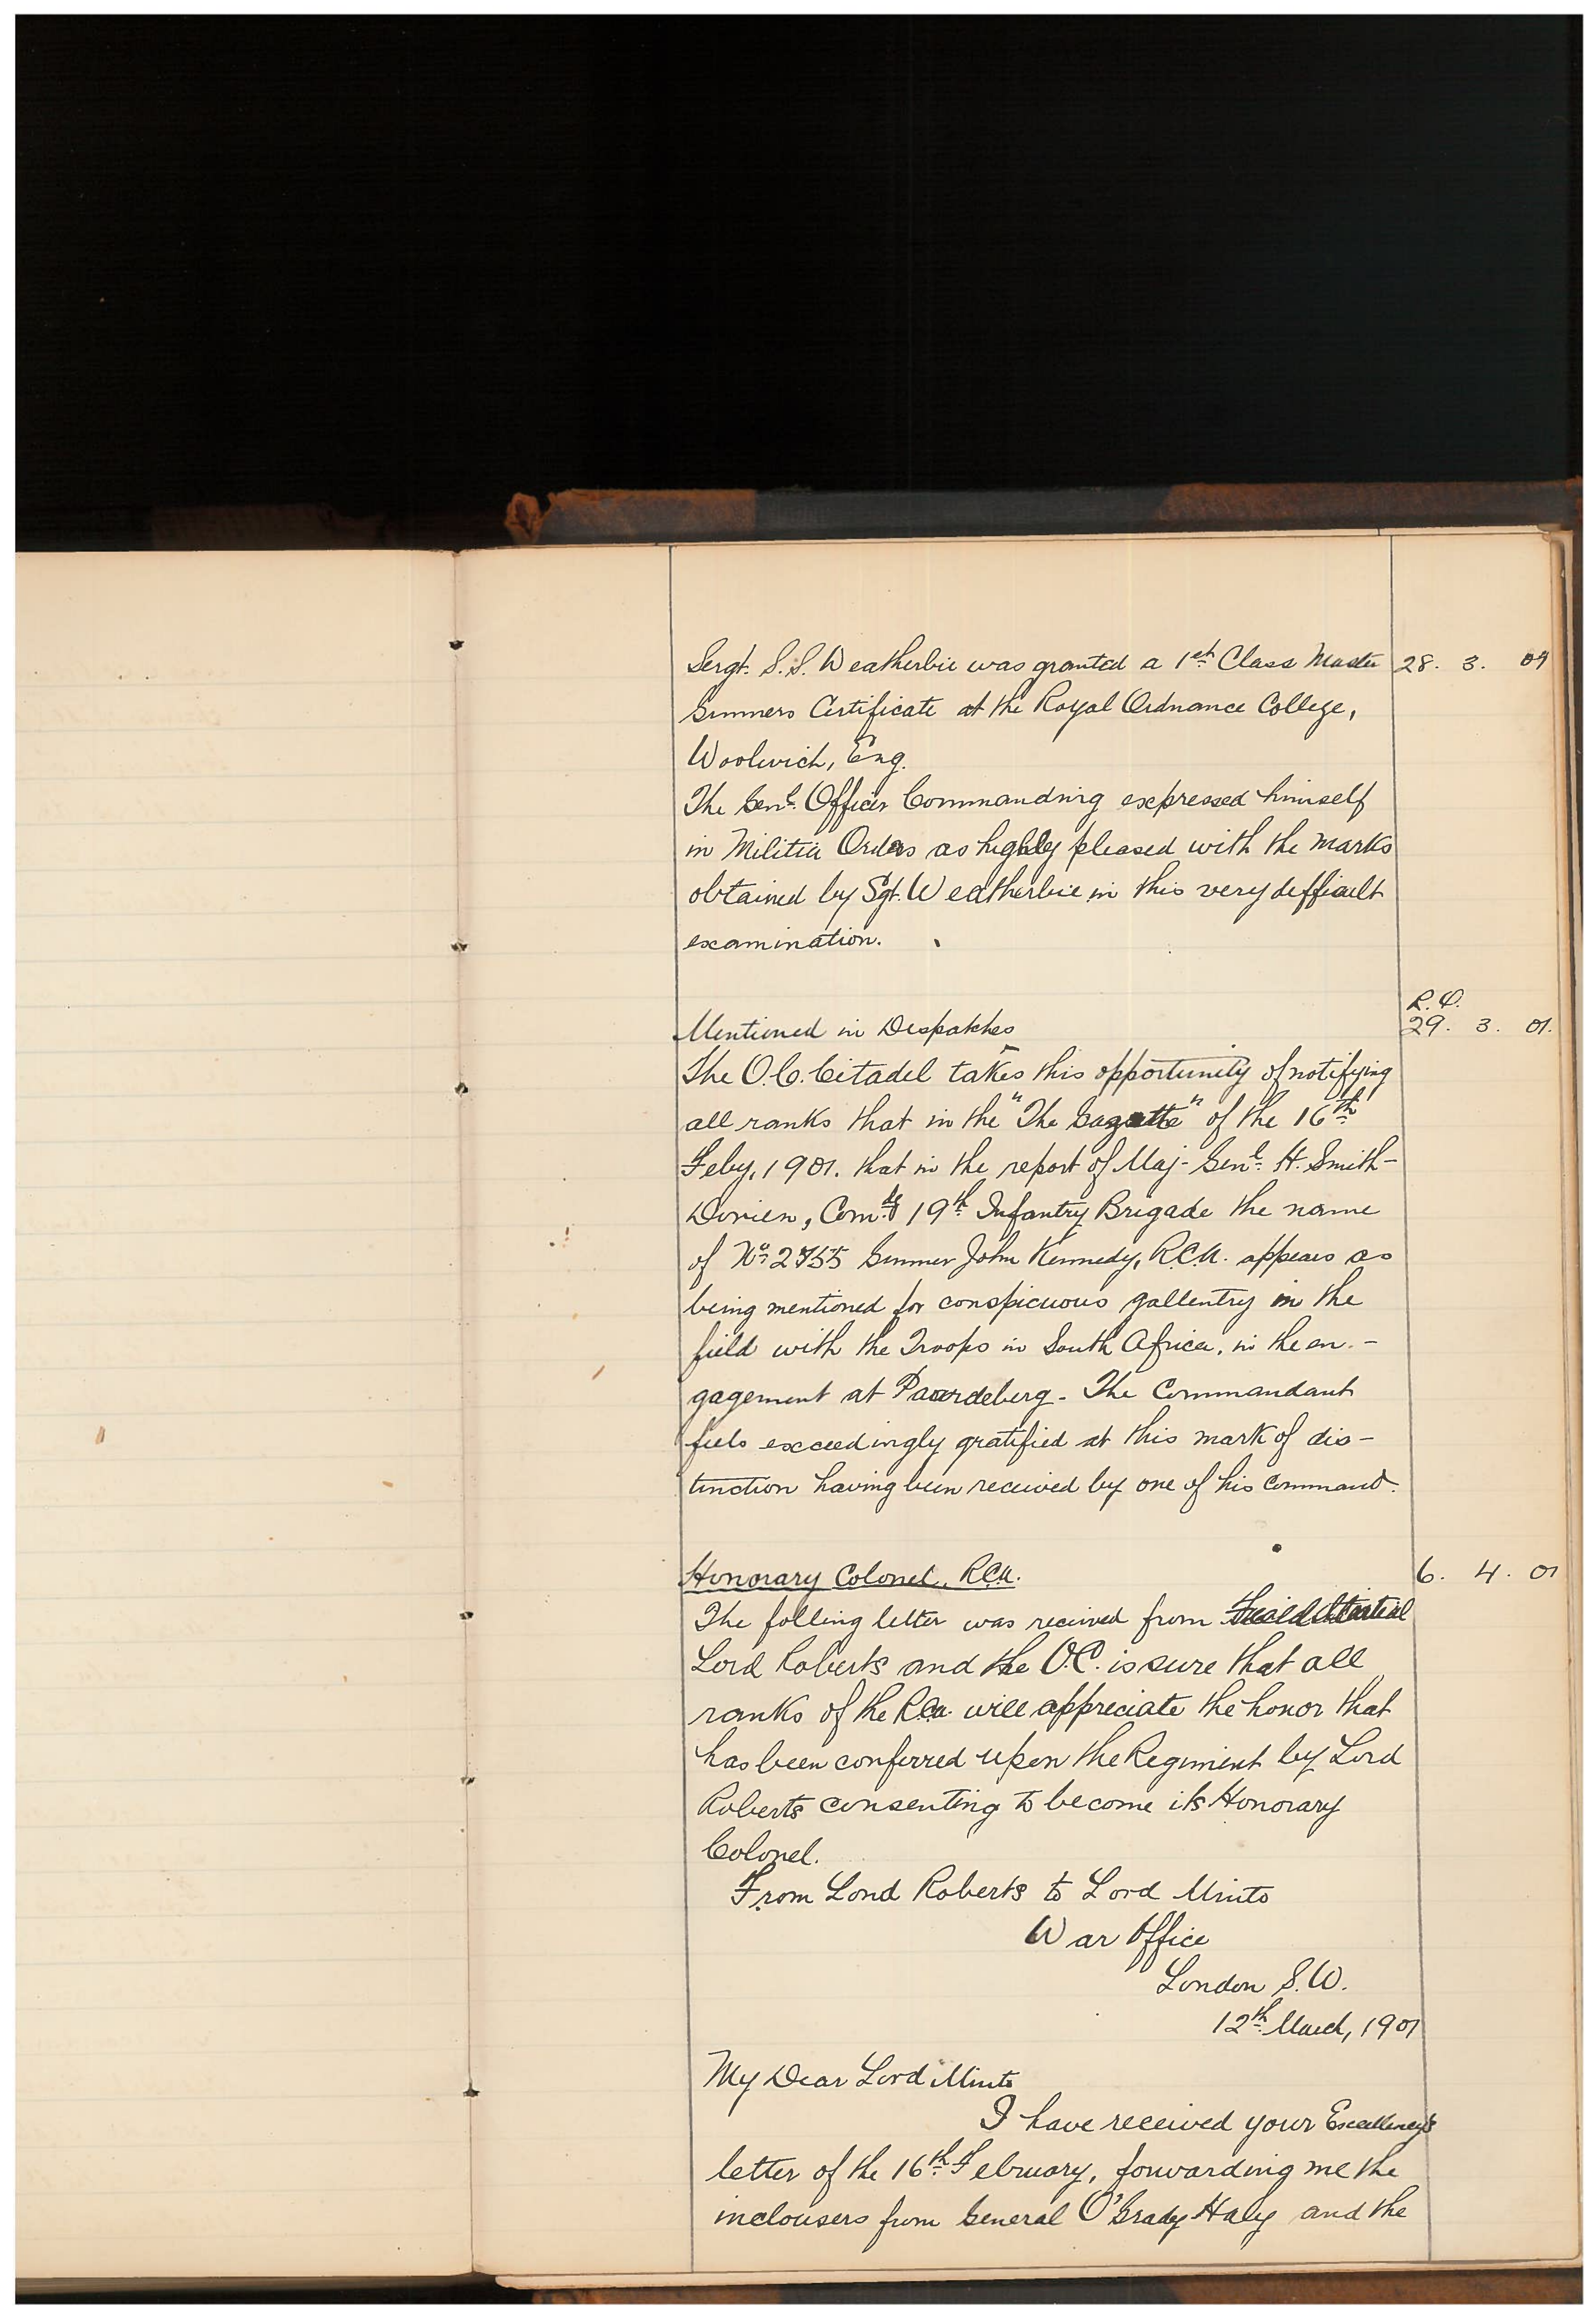 Sergt. S. S. Weatherbie was granted a 1st Class Master 28. 3. 01
Gunners Certificate at the Royal Ordnance College,
Woolwich, Eng.
The Genl. Officer Commanding expressed himself
in Militia Orders as highly pleased with the marks
obtained by Sgt. Weatherbie in this very difficult
examination.
R.O.
Mentioned in Despatches 29. 3. 01.
The O.C. Citadel takes this opportunity of notifying
all ranks that in the "The Gazette" of the 16th
Feby, 1901. that in the report of Maj-Genl. H. Smith-
Dorien, Comdg 19th Infantry Brigade the name
of No. 2755 Gunner John Kennedy, R.C.A. appears as
being mentioned for conspicuous gallentry in the
field with the Troops in South Africa, in the en-
gagement at Paardeberg - The Commandant
feels exceedingly gratified at this mark of dis-
tinction having been received by one of his Command.
Honorary Colonel, RCA. 6. 4. 01
The folling letter was received from Field Martial
Lord Roberts and the O.C. is sure that all
ranks of the RCA. will appreciate the honor that
has been conferred upon the Regiment by Lord
Roberts consenting to become its Honorary
Colonel.
From Lord Roberts to Lord Minto
War Office
London S.W.
12th March, 1901
My Dear Lord Minto
I have received your Excellency's
letter of the 16th February, forwarding me the
inclousers from General O'Grady Haly and the